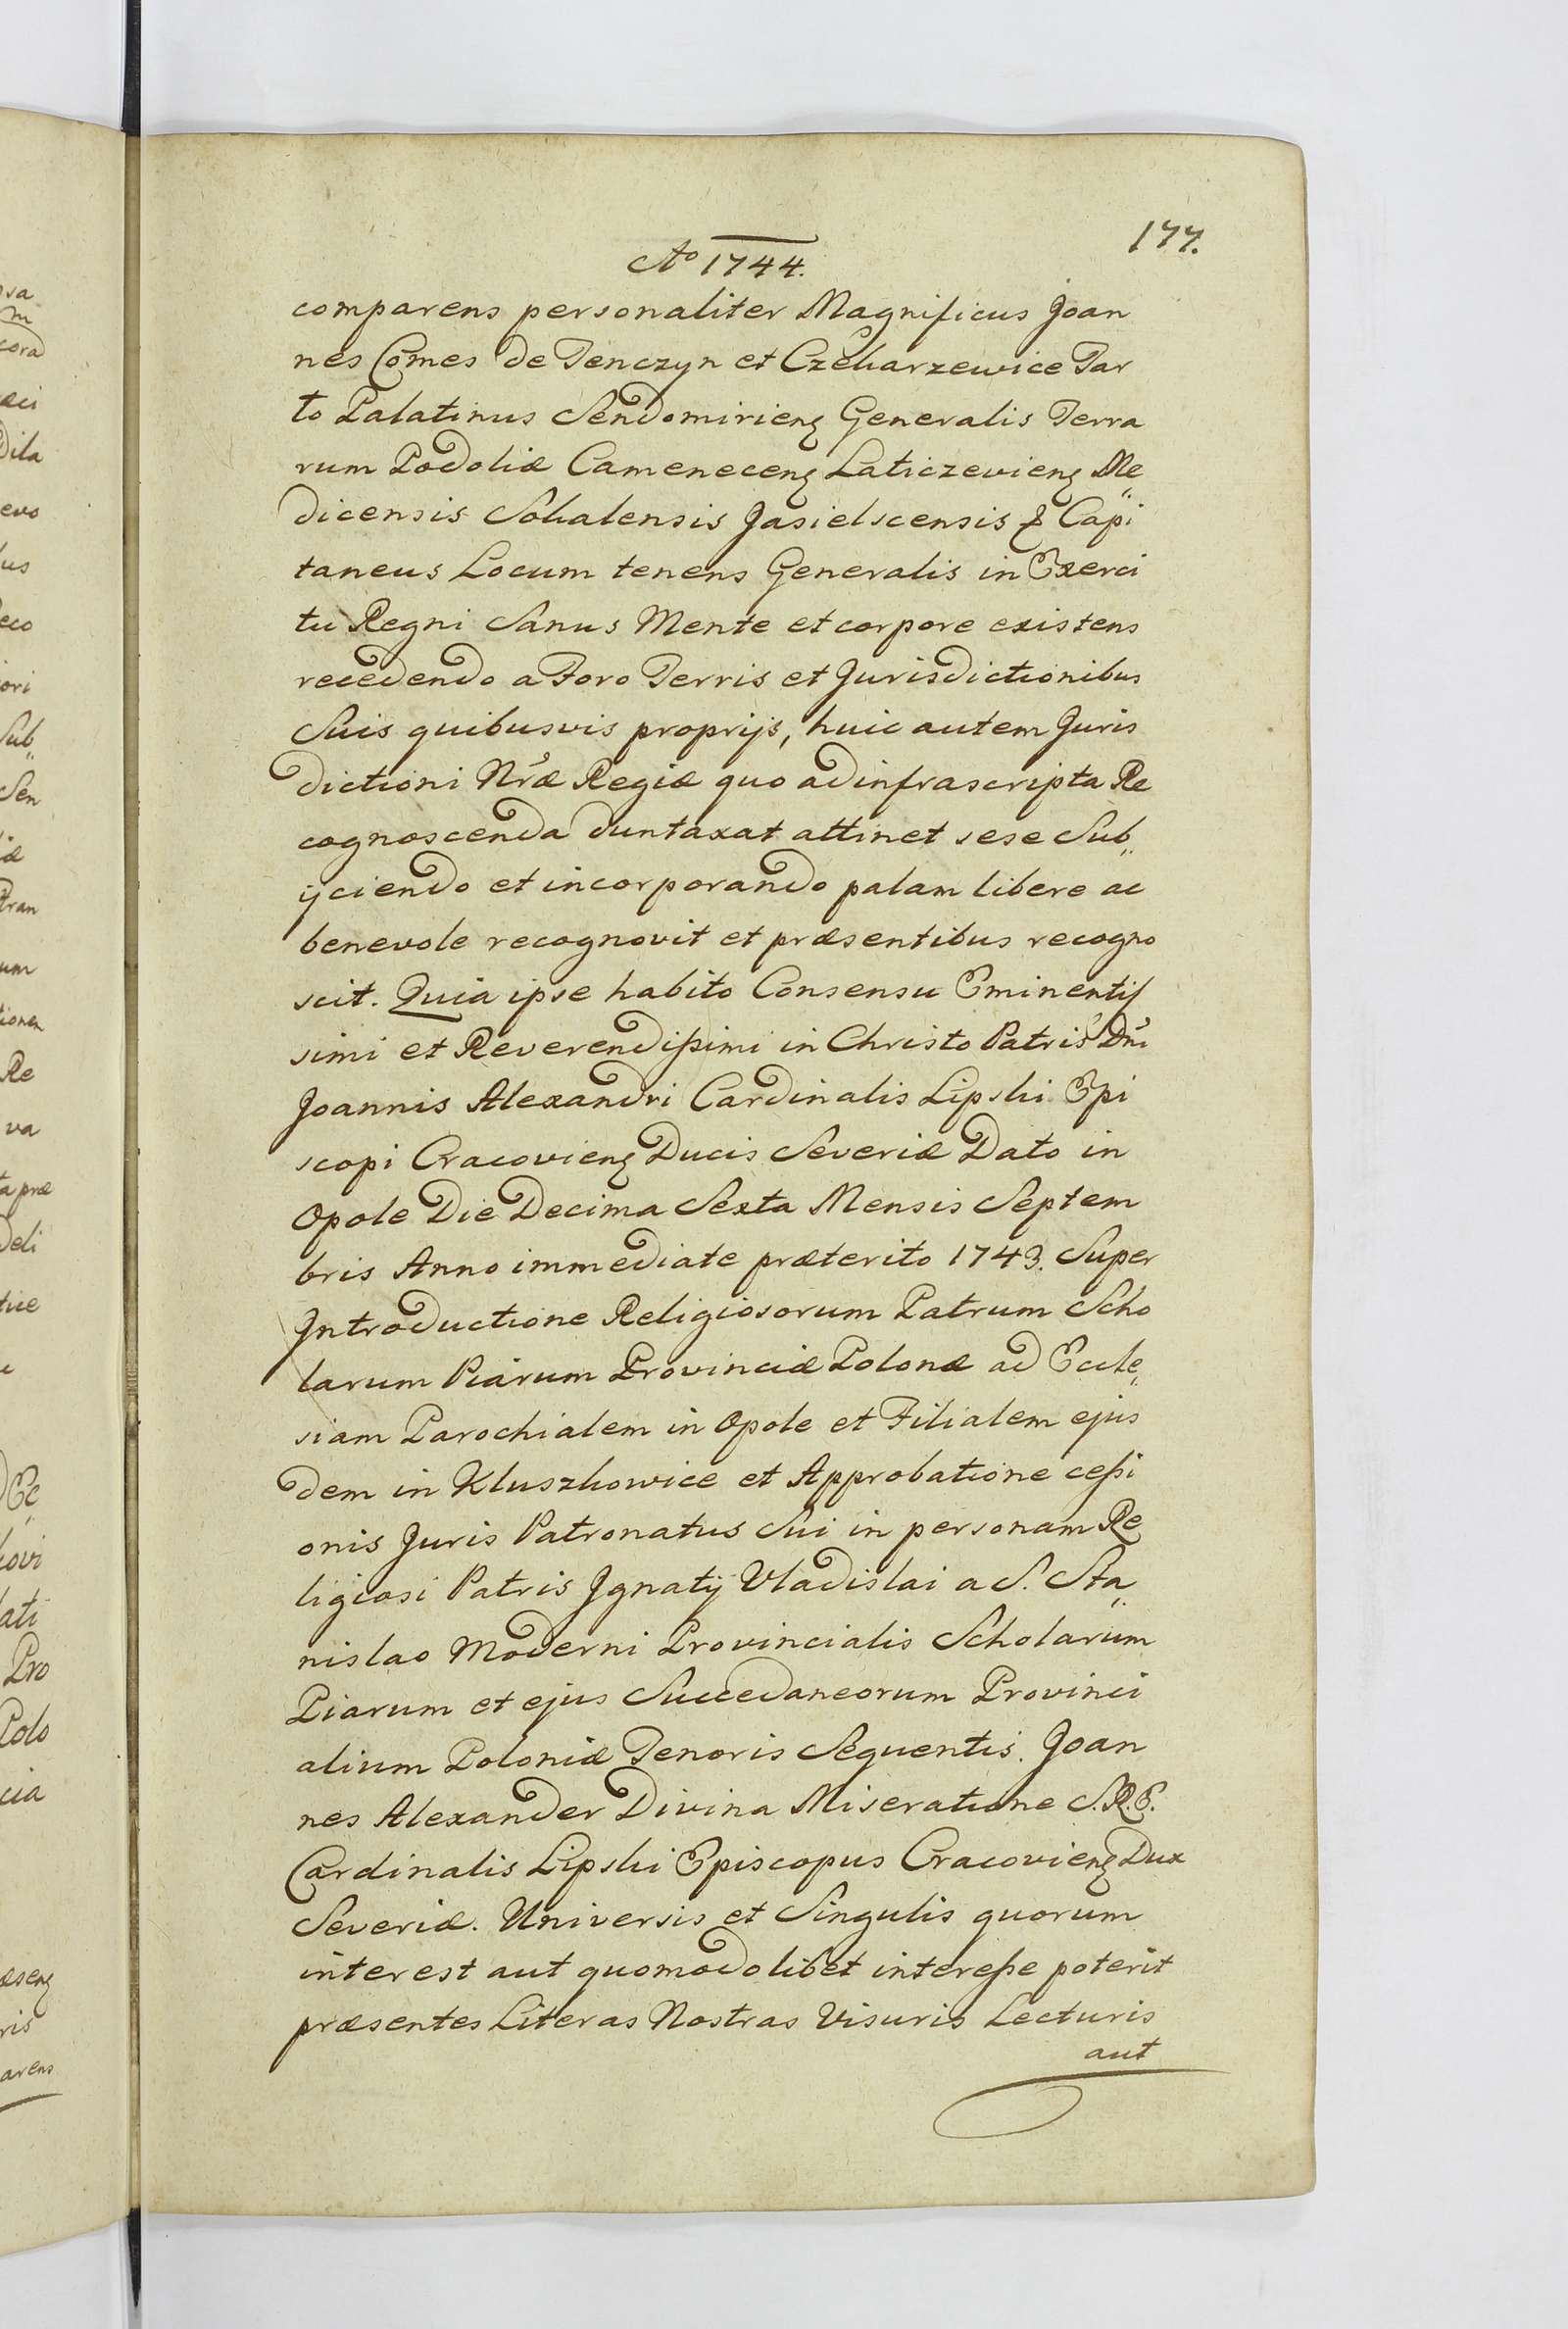 177.
Ao 1744.
comparens personaliter Magnificus Joan
nes Comes de Tenczyn et Czekarzewice Tar
to Palatinus Sendomirienς Generalis Terra
rum Podoliæ Camenecenς Laticzevienς Me„
dicensis Sokalensis Jasielscensis & Capi
taneus Locum tenens Generalis in Exerci
tu Regni Sanus Mente et corpore existens
recedendo a Foro Terris et Jurisdictionibus
Suis quibusvis proprijs, huic autem Juris
dictioni Nræ Regiæ quo ad infrascripta Re
cognoscenda duntaxat attinet sese Sub„
ijciendo et incorporando palam libere ac
benevole recognovit et præsentibus recogno
scit. Quia ipse habito Consensu Eminentis
simi et Reverendißimi in Christo Patris Dni
Joannis Alexandri Cardinalis Lipski Epi
scopi Cracovienς Ducis Severiæ Dato in
Opole Die Decima Sexta Mensis Septem
bris Anno immediate præterito 1743. Super
Introductione Religiosorum Patrum Scho
larum Piarum Provinciæ Polonæ ad Eccle„
siam Parochialem in Opole et Filialem ejus
dem in Kluszkowice et Approbatione ceßi
onis Juris Patronatus Sui in personam Re
ligiosi Patris Ignatij Vladislai a S. Sta„
nislao Moderni Provincialis Scholarum
Piarum et ejus Succedaneorum Provinci
alium Poloniæ Tenoris Sequentis. Joan
nes Alexander Divina Miseratione S.R.E.
Cardinalis Lipski Episcopus Cracovienς Dux
Severiæ. Universis et Singulis quorum
interest aut quomodolibet intereße poterit
præsentes Literas Nostras Visuris Lecturis
aut